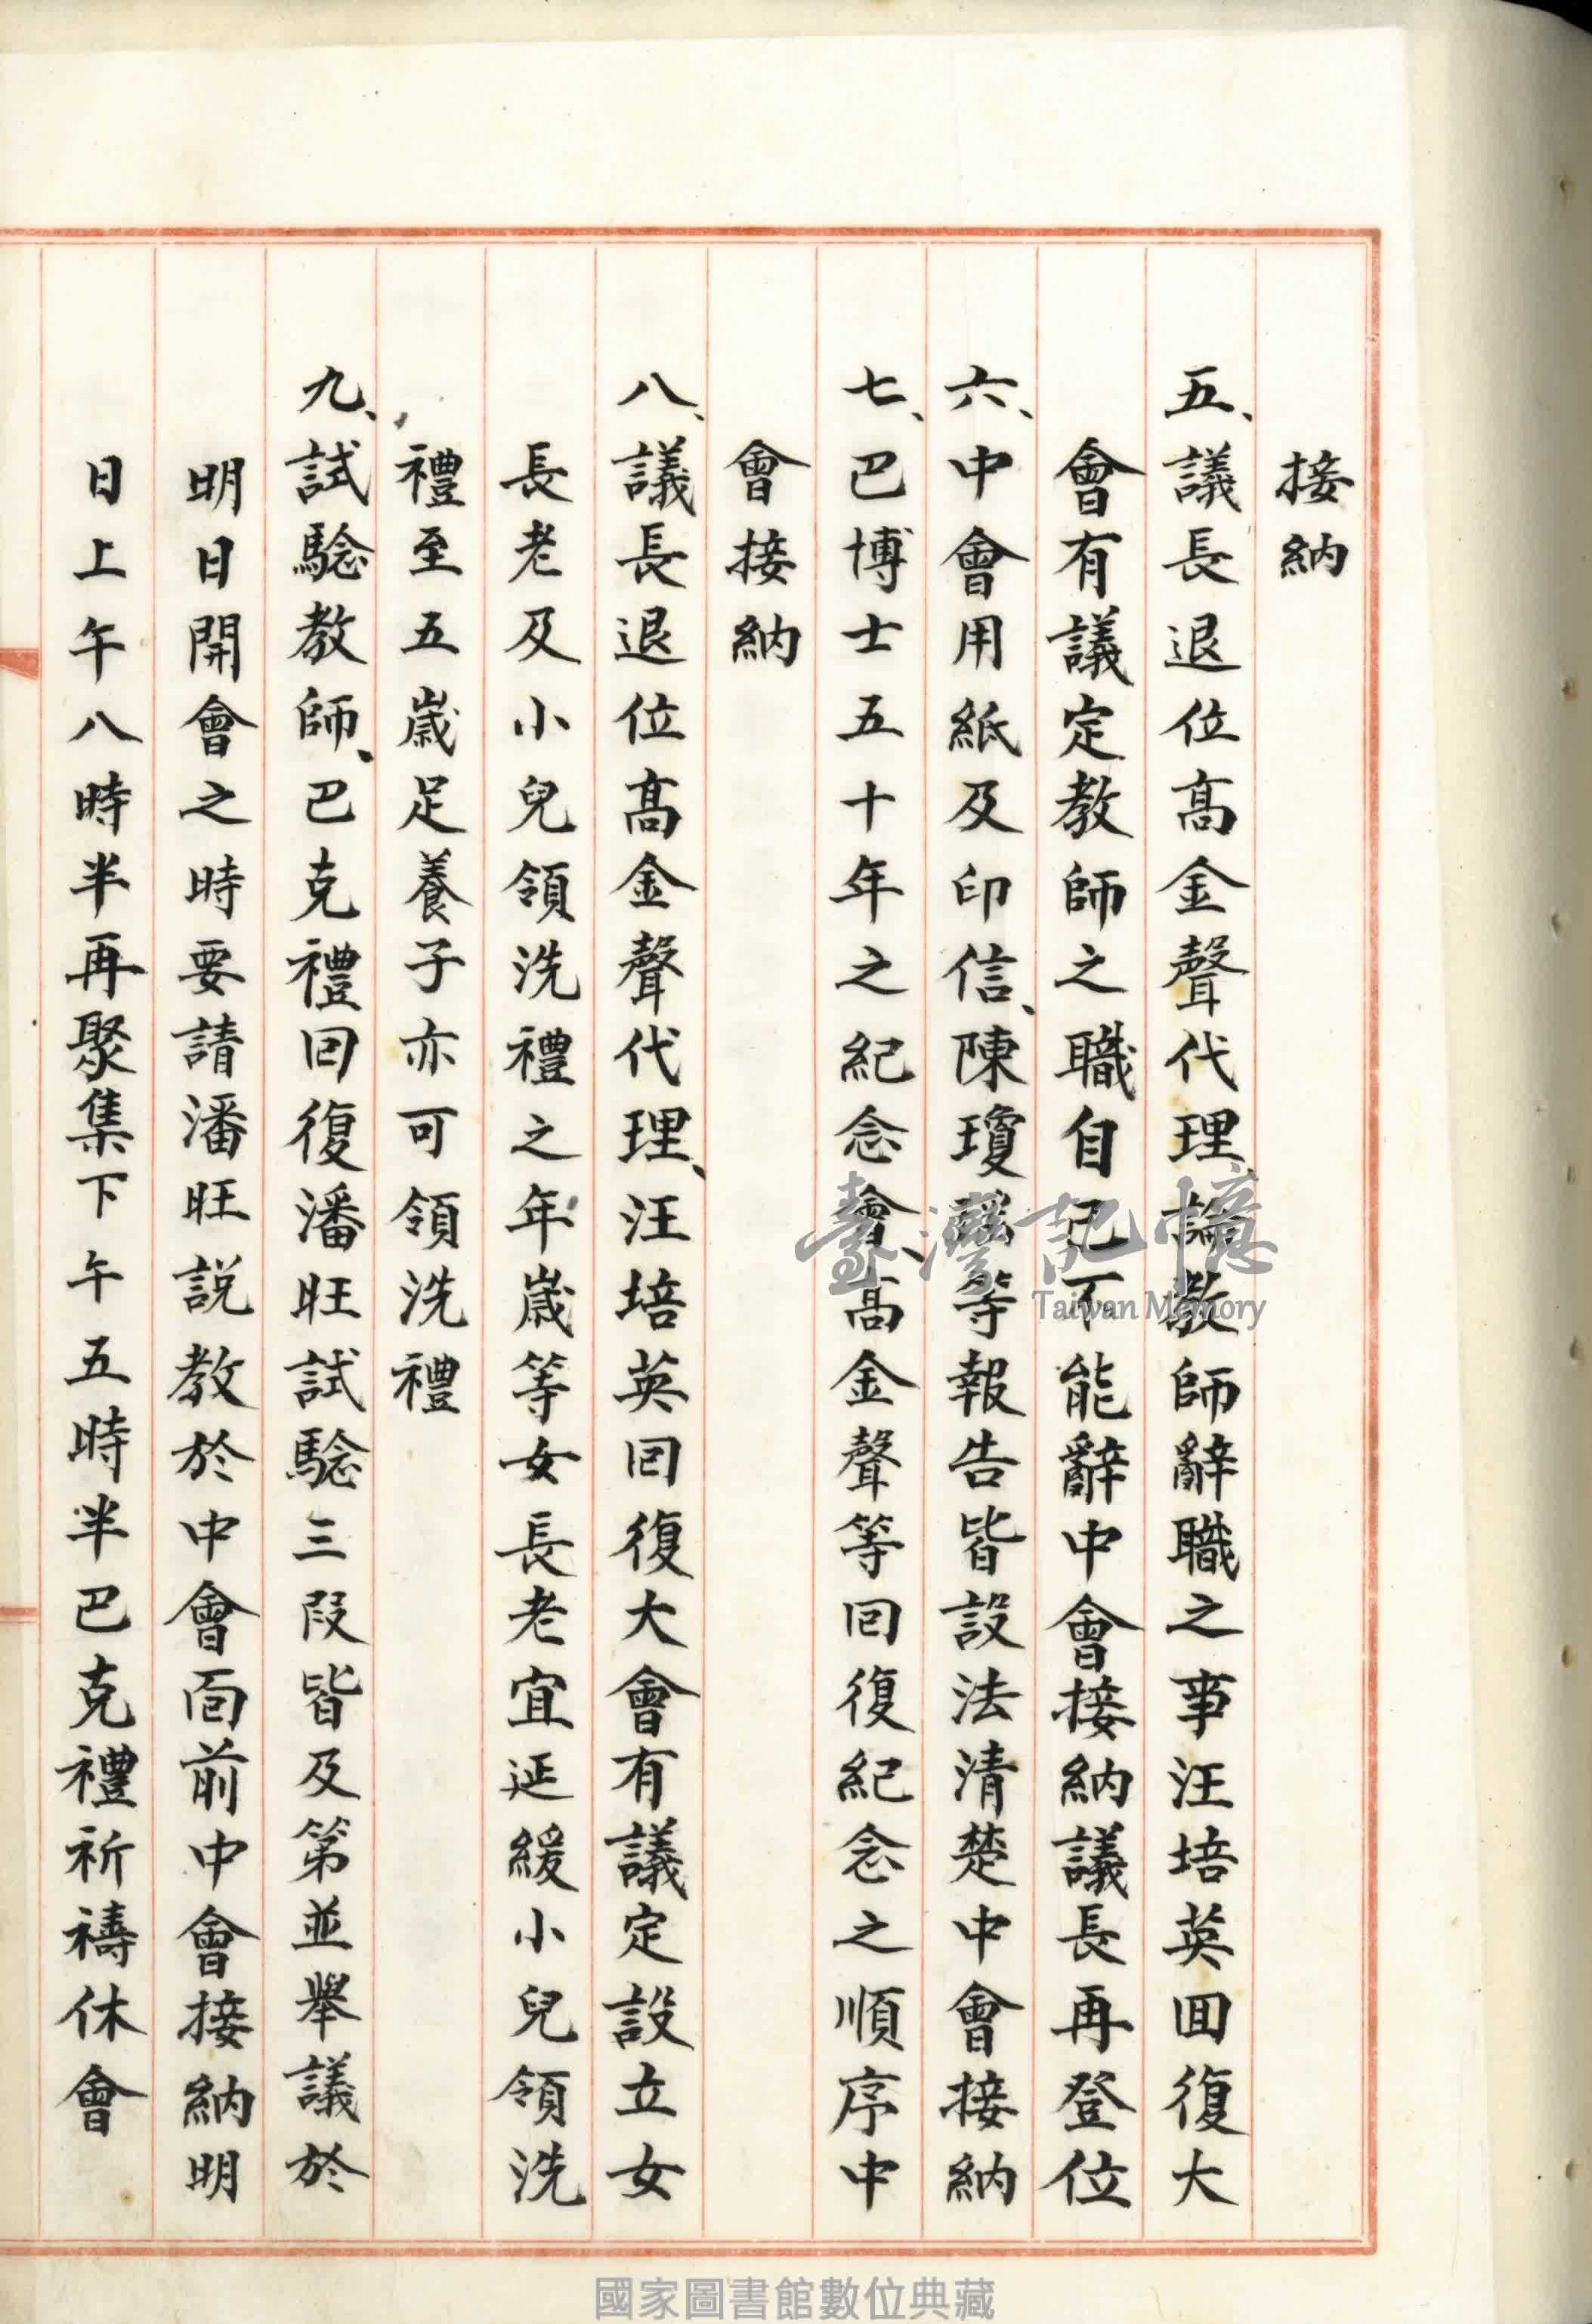 接納
五、議長退位高金聲代理論教師辭職之事汪培英囬復大
會有議定教師之職自己不能辭中會接納議長再登位
六、中會用紙及印信、陳瓊琚等報告皆設法清楚中會接納
七、巴博士五十年之紀念會、高金聲等回復紀念之順序中
會接納
八、議長退位高金聲代理、汪培英回復大會有議定設立女
長老及小兒領洗禮之年歲等女長老宜延緩小兒領洗
禮至五歲足養子亦可領洗禮
九、試驗教師、巴克禮回復潘旺試驗三段皆及第並舉議於
明日開會之時要請潘旺説教於中會面前中會接納明
日上午八時半再聚集下午五時半巴克禮祈禱休會
臺灣記憶
Taiwan Memory
國家圖書館數位典藏